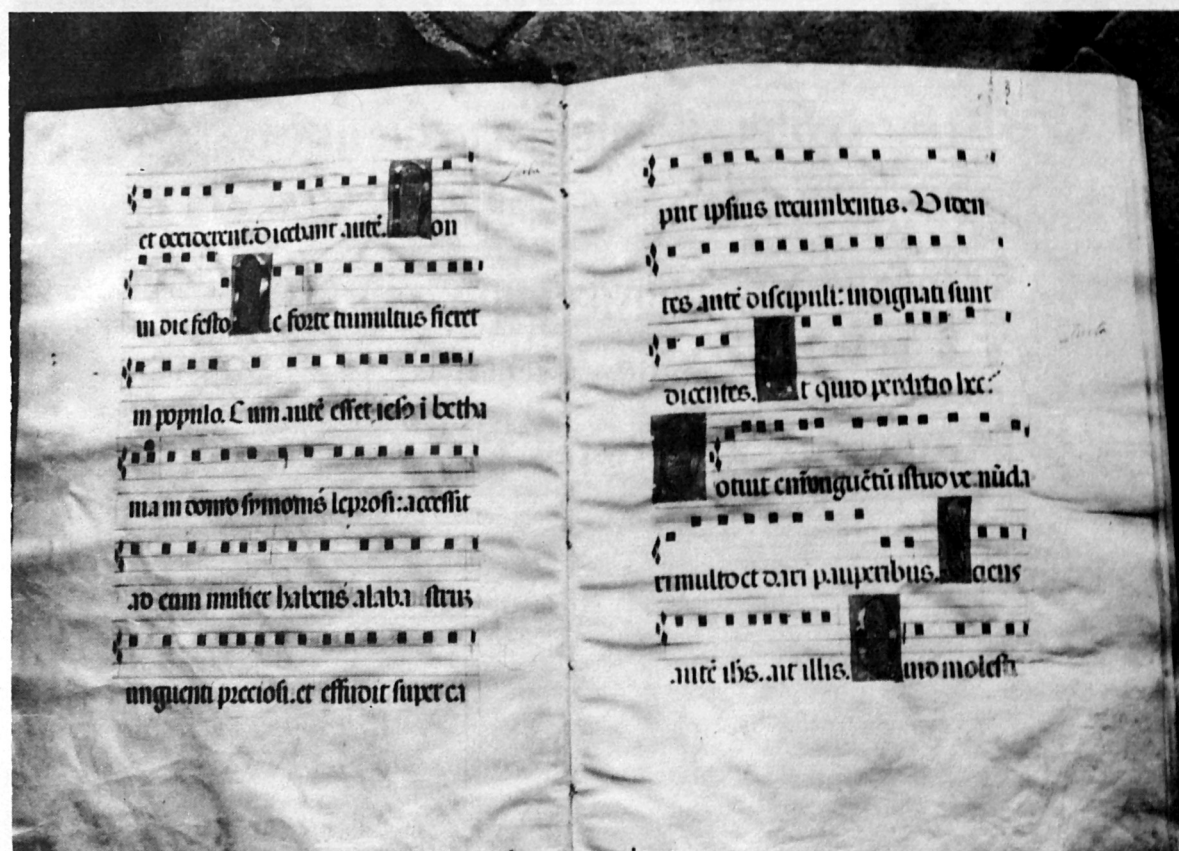 et occiderent. Dicebant autē. Non
in die festo Ne forte tumultus fieret
in populo. Cum autē esset iesꝰ ī betha
nia in domo symonis leprosi: accessit
ad eum mulier habens alaba strum
unguenti preciosi. et effudit super ca
put ipsius recumbentis. Viden
tes autē discipuli: indignati sunt
dicentes. Ut quid perditio hec?
Potuit enī unguētū istud ve nūda
ri multo et dari pauperibus. Sciens
autē ihs. ait illis. Quid molesti